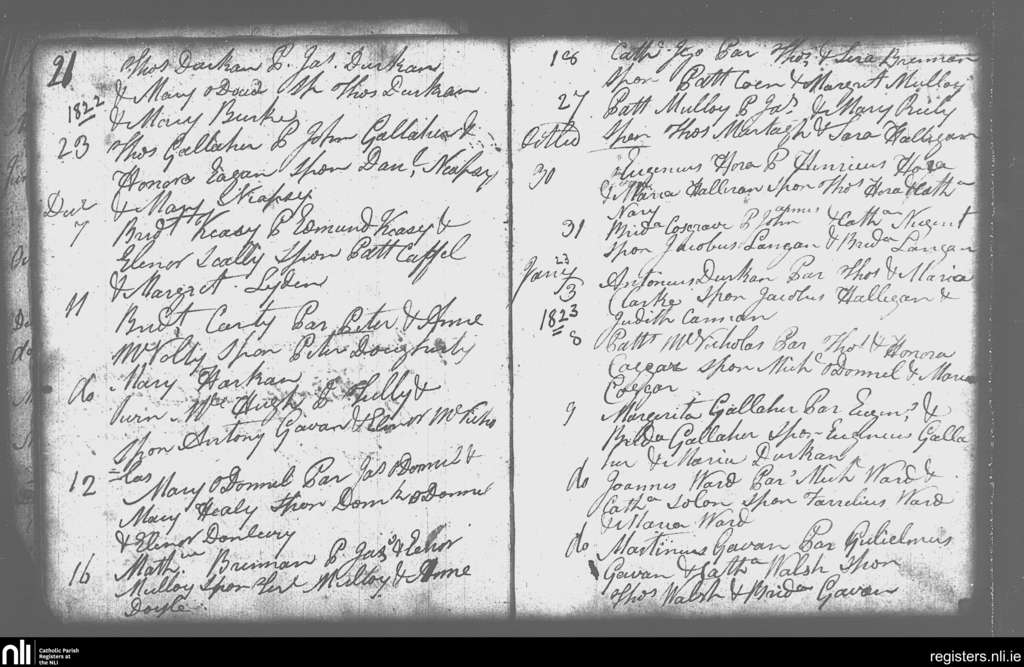 21 Thos Durkan P. Jas. Durkan
1822 & Mary oDoud Sp Thos Durkan
& Mary Burke
23 Thos Gallaher P John Gallaher &
Honora Eagan Spon Danl. Neapsy
Decr & Mary Neapsy
7 Bridt Keasy P Edmund Keasy &
Elenor Scally Spon Patt Caffel
& Margret Lyden
11 Bridt Carty Par Peter & Anne
McNolty Spon Peter Dougherty
do Mary Harkan
Hugh P Philly &
Spon Antony Gavan & Elinor McNicho
=las
12 Mary oDonnel Par Jas oDonnel &
Mary Healy Spon Domk oDonnel
& Elinor Donlevy
16 Math. Brennan P. Jas. & Elenor
Mulloy Spon Mulloy & Anne
Doyle
18 Cath Par Thos. & Brennan
Spon Patt Coen & Margret Mulloy
27 Patt Mulloy P Jas & Mary Reily
Spon Thos Murtagh & Sara Halligan
30 Eugenius Hora P Henricus Hora
& Maria Halliran Spon Thos Hora & Catha
Nary
31 Brida Cosgrave P John & Catha Nugent
Spon Jacobus Langan & Brida Langan
Janry 23
3 Antonius Durkan Par Thos & Maria
Clarke Spon Jacobus Halligan &
1823 Judith Cannan
8 Patts McNicholas Par Thos & Honora
Caegar Spon Mich oDonnel & Maria
Caegar
9 Margerita Gallaher Par Eugens. &
Brida Gallaher Spon Eugenius Galla
her & Maria Durkan
do Joannis Ward Par Mich Ward &
Catha Solon Spon Farrelius Ward
& Maria Ward
do Martinus Gavan Par Gulielmus
Gavan & Catha Walsh Spon
Thos Walsh & Brida Gavan
nli Catholic Parish
Registers at
the NLI
registers.nli.ie